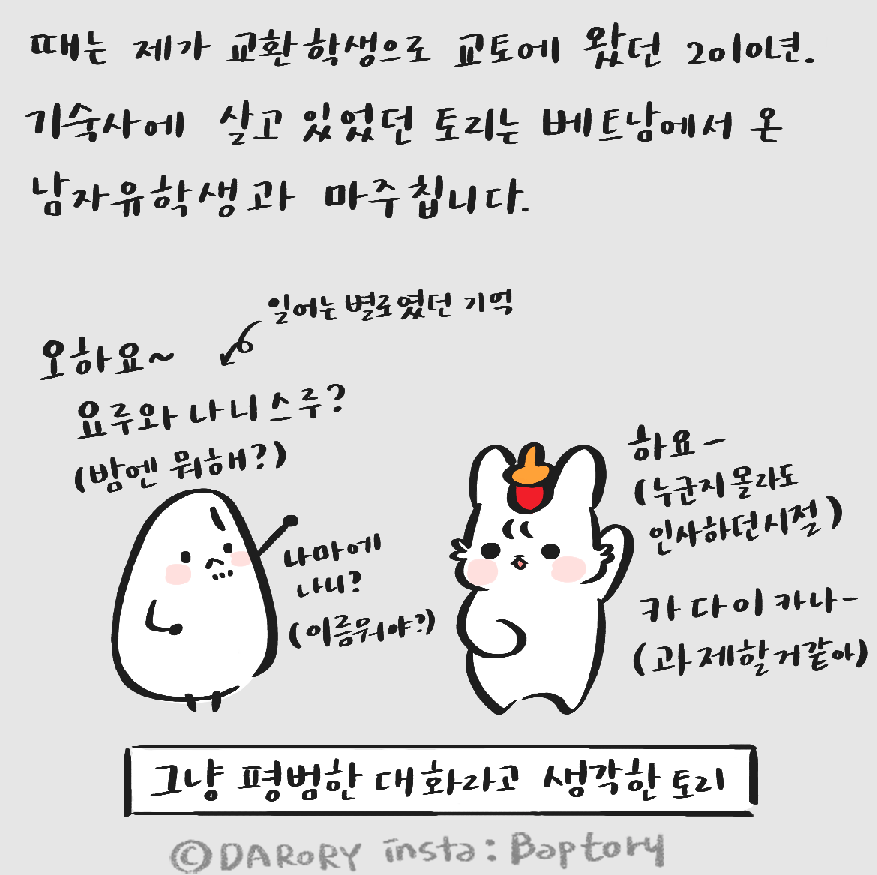 때는 제가 교환학생으로 교토에 왔던 2010년.
기숙사에 살고 있었던 토리는 베트남에서 온
남자유학생과 마주칩니다.
일어는 별로였던 기억
오하요~
요루와 나니스루?
(밤엔 뭐해?)
하요-
(누군지 몰라도
인사하던시절)
나마에
나니?
(이름뭐야?)
카다이카나-
(과제할거같아)
그냥 평범한 대화라고 생각한 토리
©DARORY insta: Baptory